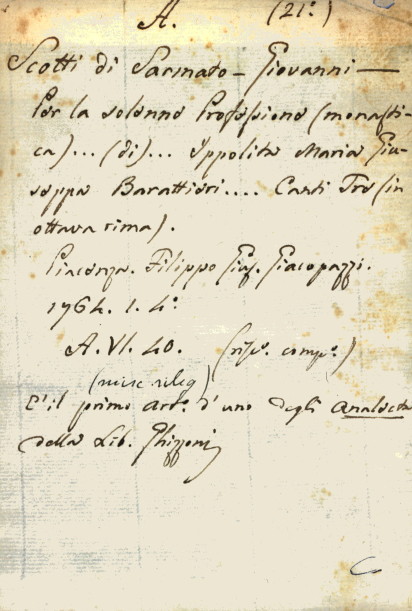 A. (21°.)
Scotti di Sarmato – Giovanni —
Per la solenne Professione (monasti-
ca)... (di)... Ippolita Maria Giu-
seppa Barattieri.... Canti Tre (in
ottava rima).
Piacenza. Filippo Gius. Giacopazzi.
1764. l. 4°.
A. VI. 40. (risp. comp.)
(misc. rileg)
È il primo art°. d'uno degli Analecta
della Lib. Ghizzoni